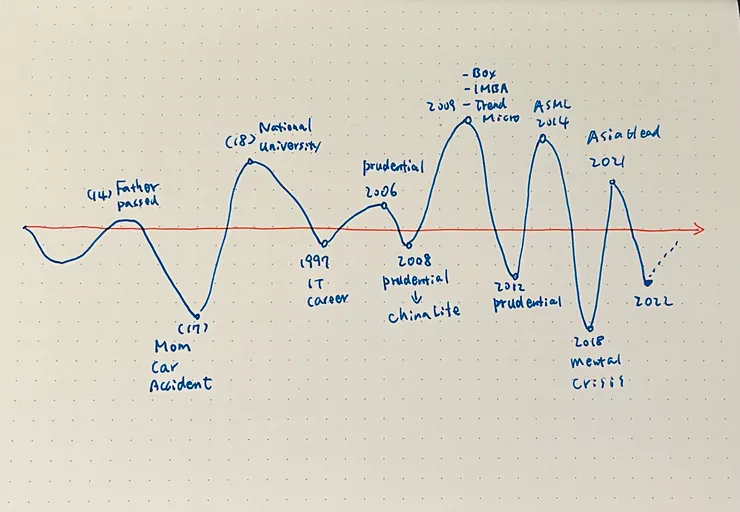 (14) Father
passed
(17)
Mom
Car
Accident
(18) National
University
1997
IT
Career
prudential
2006
2008
prudential
↓
China Life
- Box
- IMBA
2009 - Trend
Micro
2012
prudential
ASML
2014
2018
mental
crisis
Asia Head
2021
2022